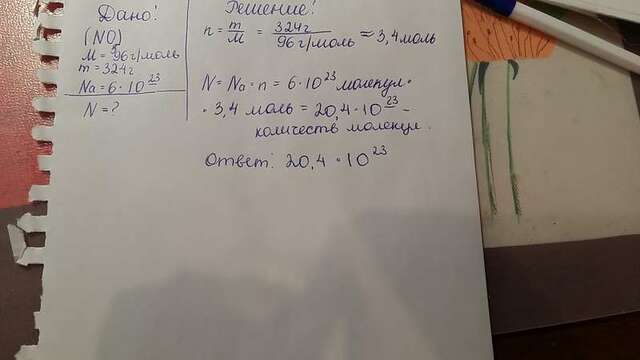 Дано!
(NO)
M = 96 г/моль
m = 324г
Na = 6 · 10²³
N = ?
Решение!
n = m/M = 324г / 96 г/моль ≈ 3,4 моль
N = Na · n = 6 · 10²³ молекул ·
· 3,4 моль = 20,4 · 10²³ -
количеств молекул.
Ответ: 20,4 · 10²³